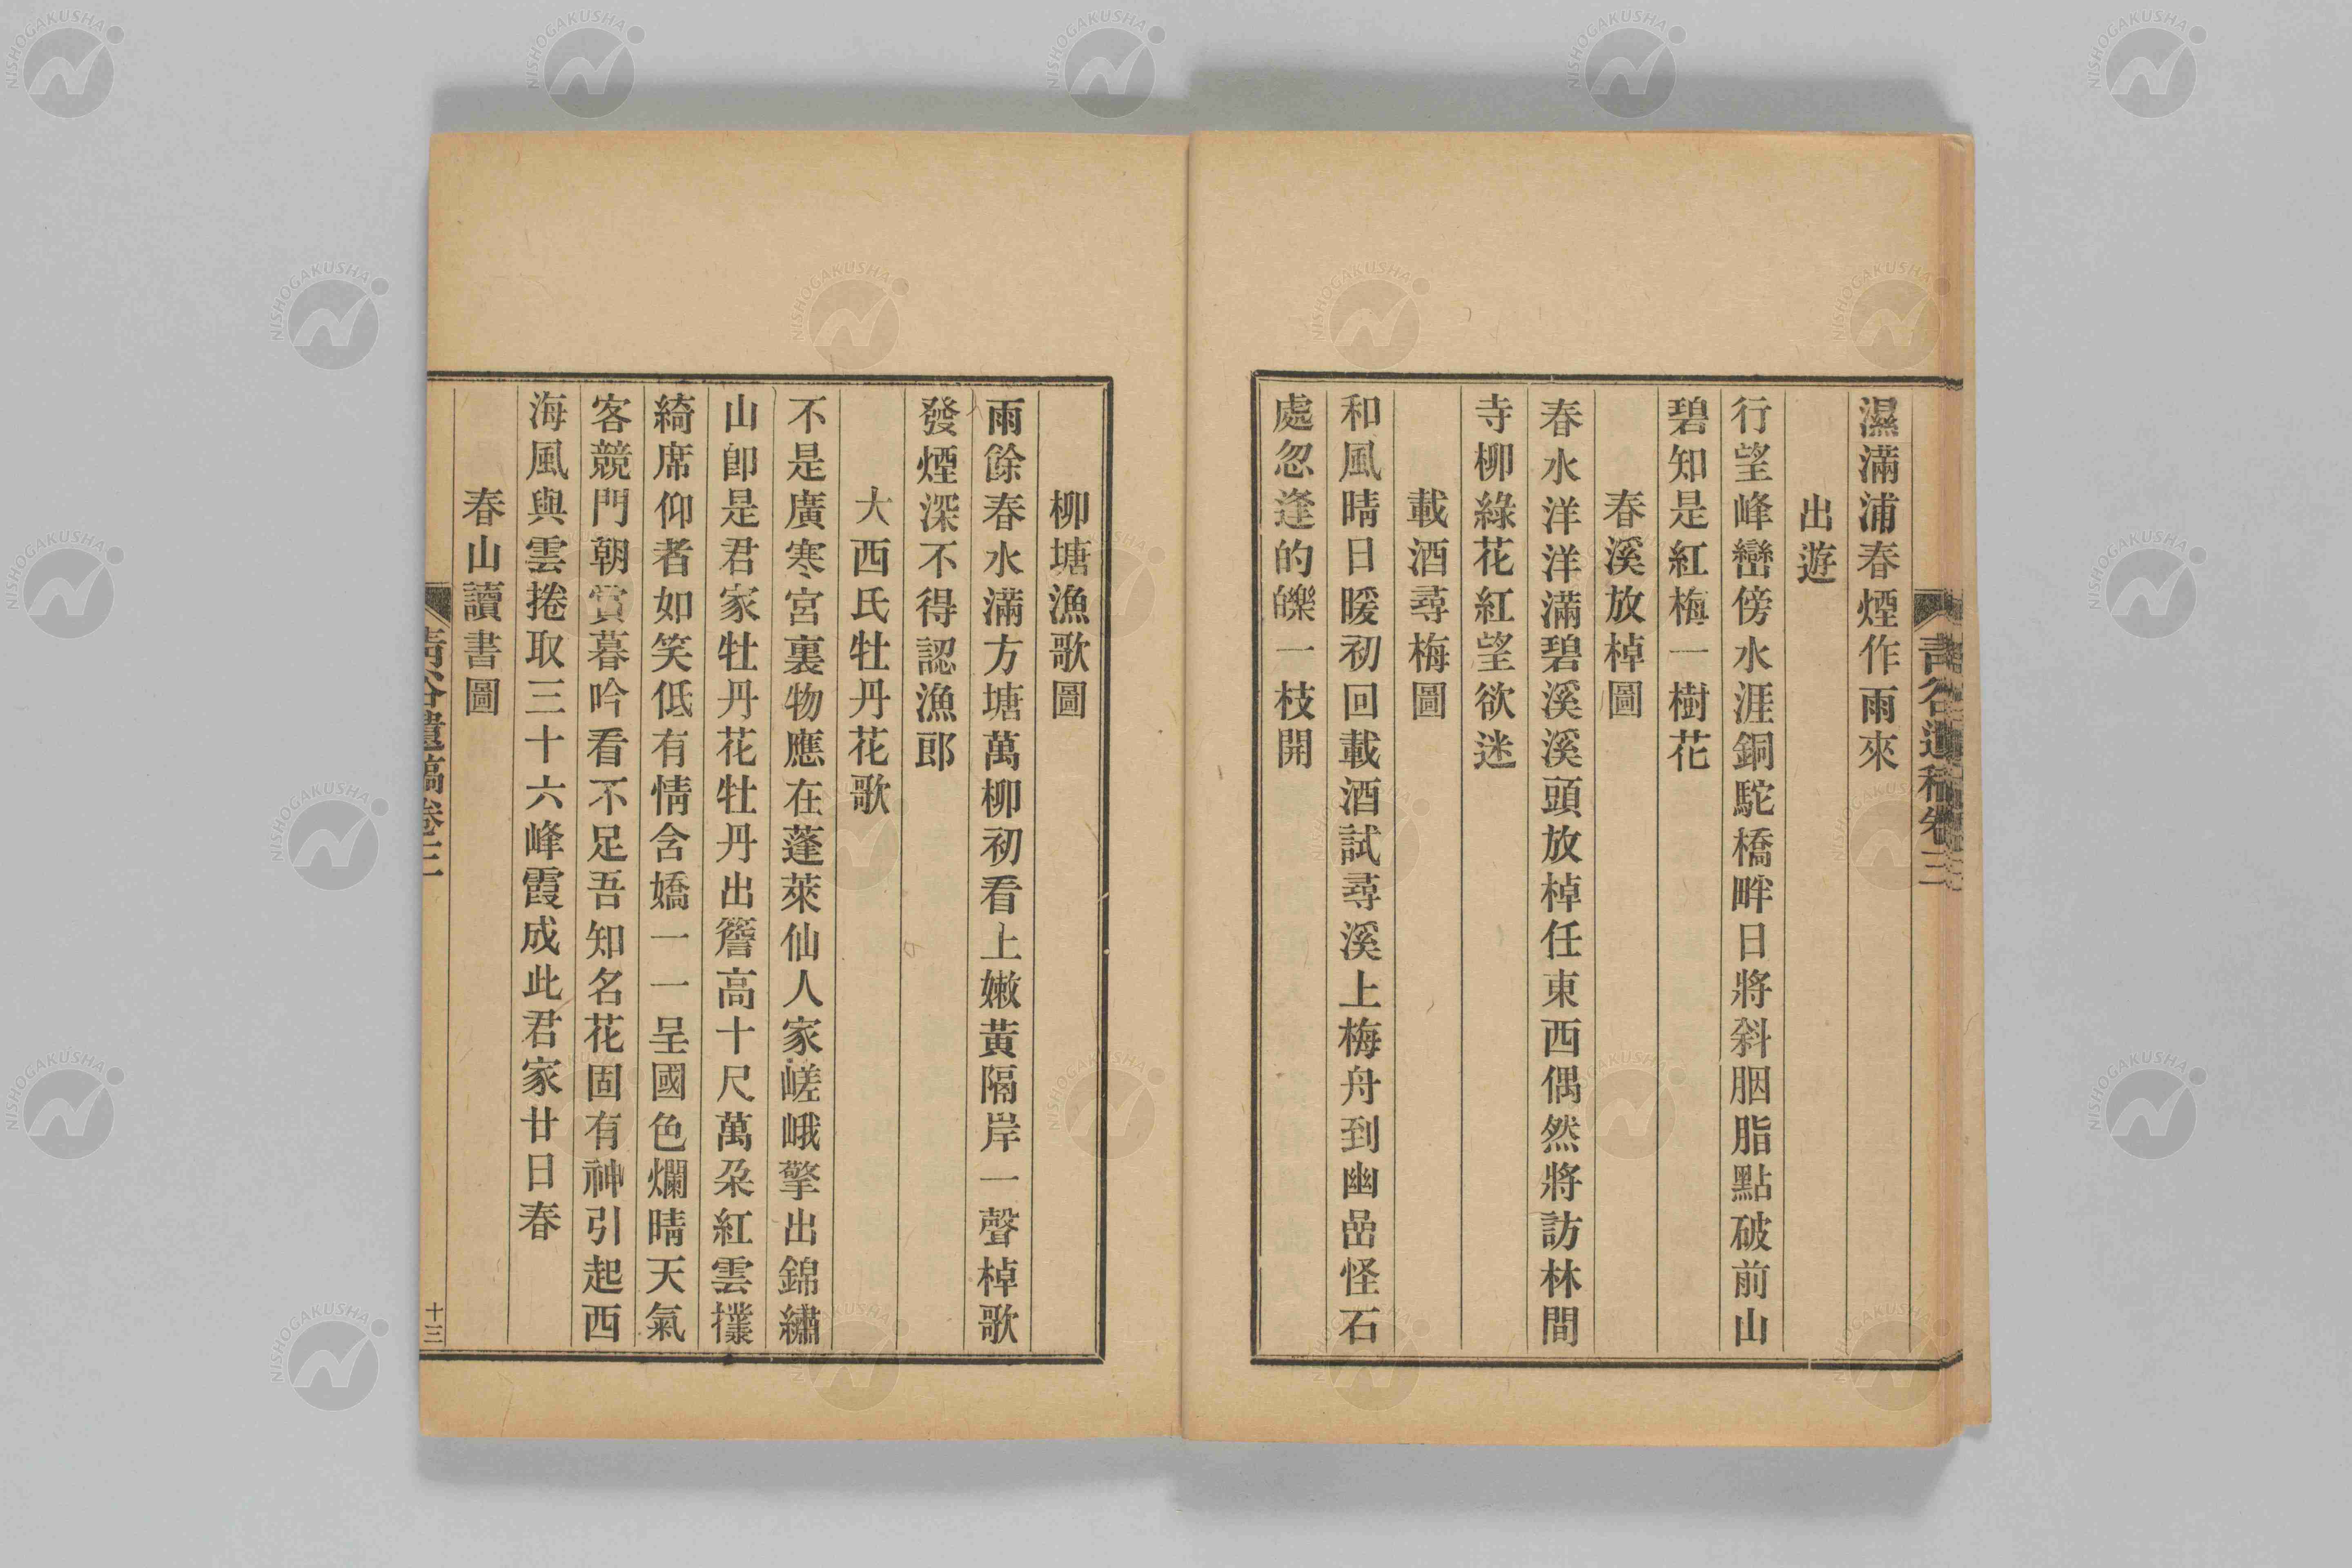 濕滿浦春煙作雨來
出遊
行望峰巒傍水涯銅駝橋畔日將斜胭脂點破前山
碧知是紅梅一樹花
春溪放棹圖
春水洋洋滿碧溪溪頭放棹任東西偶然將訪林間
寺柳綠花紅望欲迷
載酒尋梅圖
和風晴日暖初回載酒試尋溪上梅舟到幽嵒怪石
處忽逢的皪一枝開
柳塘漁歌圖
雨餘春水滿方塘萬柳初看上嫩黃隔岸一聲棹歌
發煙深不得認漁郎
大西氏牡丹花歌
不是廣寒宮裏物應在蓬萊仙人家嵯峨擎出錦繡
山卽是君家牡丹花牡丹出簷高十尺萬朶紅雲撲
綺席仰者如笑低有情含嬌一一呈國色爛晴天氣
客競門朝賞暮吟看不足吾知名花固有神引起西
海風與雲捲取三十六峰霞成此君家廿日春
春山讀書圖
青谷遺稿卷三
十三
NISHOGAKUSHA